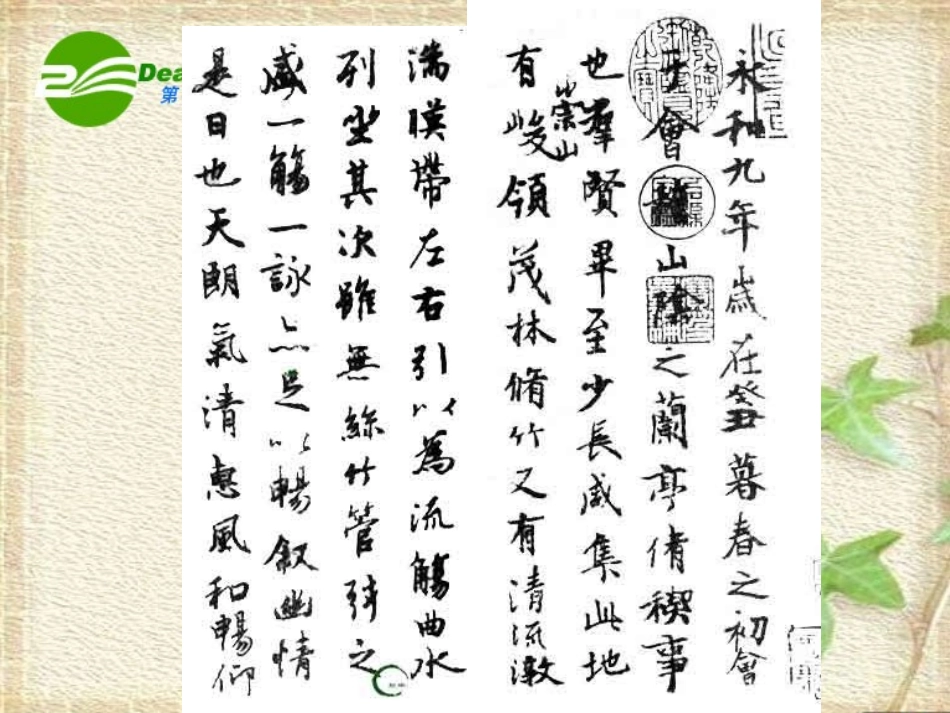 永和九年歲在癸丑暮春之初會
于會稽山陰之蘭亭脩稧事
也羣賢畢至少長咸集此地
有崇山峻領茂林脩竹又有清流激
湍暎帶左右引以為流觴曲水
列坐其次雖無絲竹管弦之
盛一觴一詠亦足以暢敘幽情
是日也天朗氣清惠風和暢仰
Dea
第